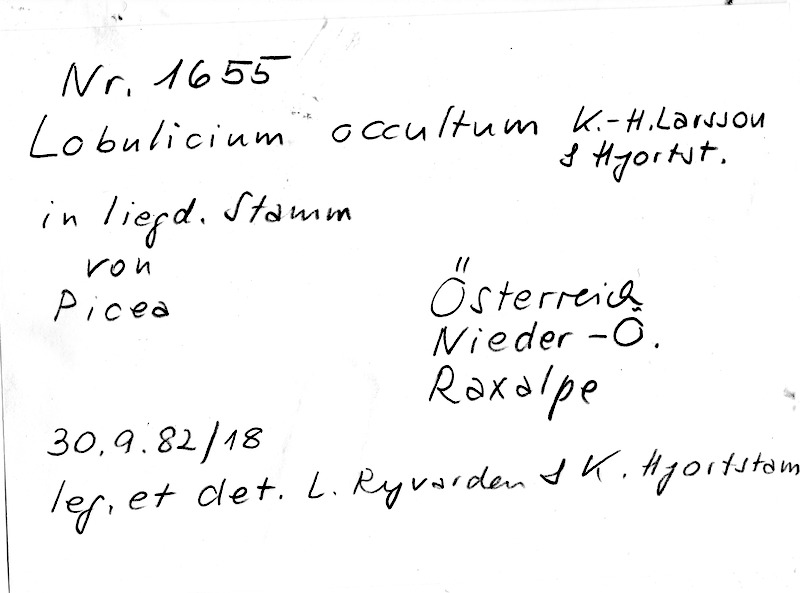 Nr. 1655
Lobulicium occultum K.-H. Larsson
& Hjortst.
in liegd. Stamm
von
Picea
Österreich
Nieder-Ö.
Raxalpe
30.9.82/18
leg. et det. L. Ryvarden & K. Hjortstam